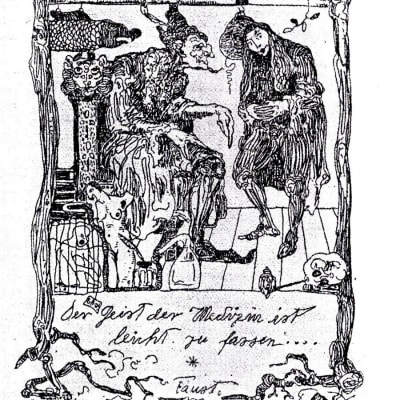 Der Geist der Medizin ist
leicht zu fassen....
*
Faust.